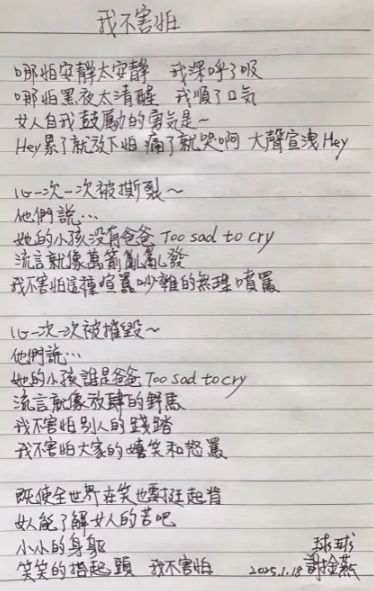 我不害怕
哪怕安靜太安靜 我深呼了吸
哪怕黑夜太清醒 我順了口気
女人自我鼓勵的勇気是一
Hey 累了就放下怕 痛了就哭啊 大聲宣洩 Hey
心一次一次被撕裂~
他們說…
她的小孩沒有爸爸 Too sad to cry
流言就像萬箭亂亂發
我不害怕這種喧囂吵雜的無理噴罵
心一次一次被摧毀~
他們說…
她的小孩誰是爸爸 Too sad to cry
流言就像放肆的野馬
我不害怕別人的踐踏
我不害怕大家的嬉笑和怒罵
既使全世界在笑也要挺起背
女人能了解女人的苦吧
小小的身軀 球球
笑笑的抬起頭 我不害怕 2025.1.18 謝金燕